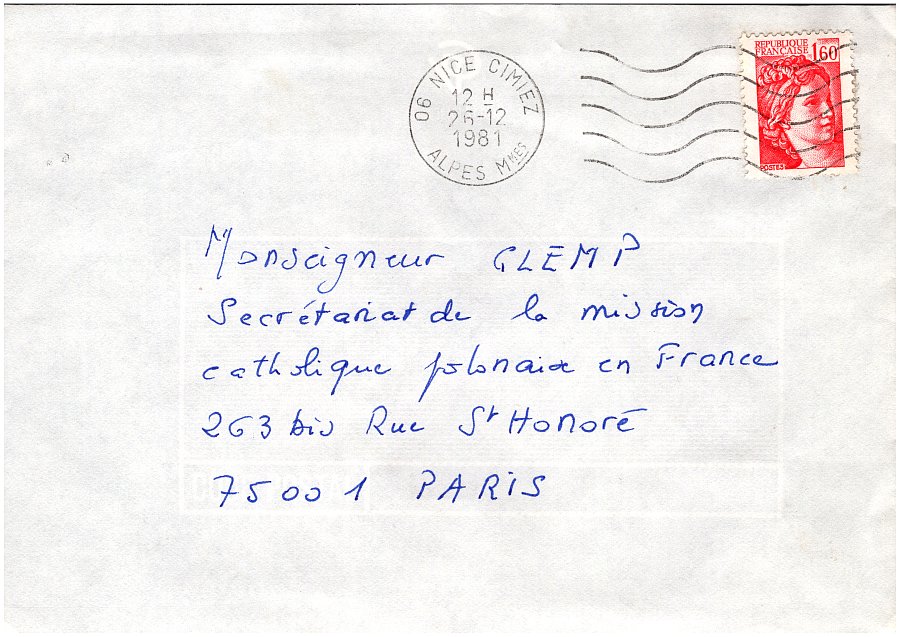 06 NICE CIMIEZ
12 H
26-12
1981
ALPES MMES
REPUBLIQUE
FRANÇAISE
1,60
POSTES
Monseigneur GLEMP
Secrétariat de la mission
catholique polonaise en France
263 bis Rue St Honoré
75001 PARIS